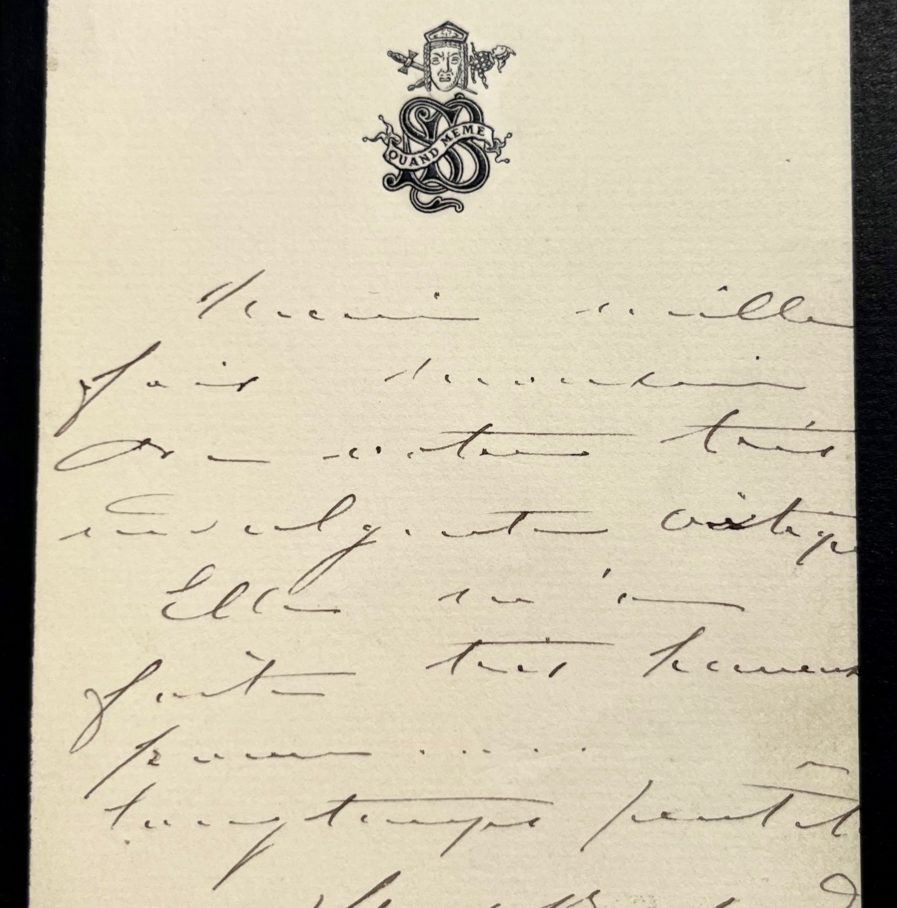 QUAND MEME
Merci mille
fois monsieur
de votre très
indulgente critique
Elle m'a
faite très heureuse
pour .....
longtemps peut-êt